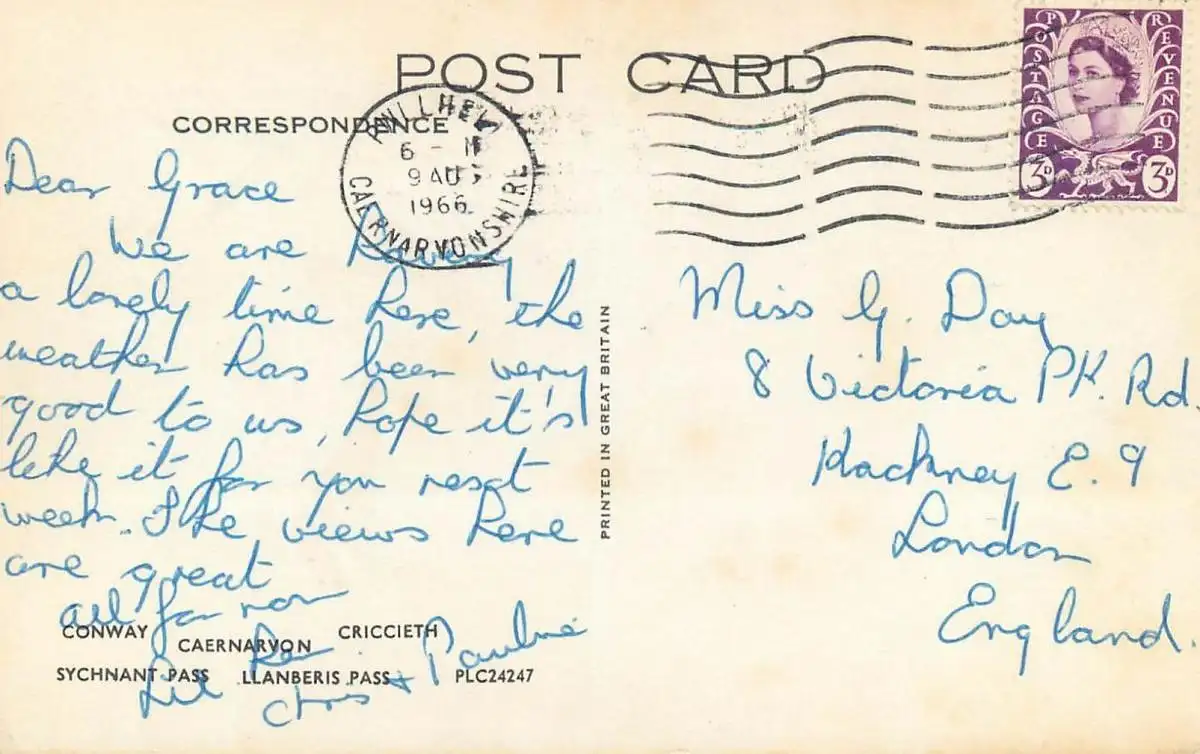 POST CARD
CORRESPONDENCE
PWLLHELI
6 - PM
9 AU
1966
CAERNARVONSHIRE
POSTAGE
REVENUE
3D
3D
Dear Grace
We are having
a lovely time here, the
weather has been very
good to us, hope it's
like it for you next
week. The views here
are great
all for now
Lil Ken
Chris + Pauline
PRINTED IN GREAT BRITAIN
Miss G. Day
8 Victoria PK. Rd.
Hackney E. 9
London
England.
CONWAY CAERNARVON CRICCIETH
SYCHNANT PASS LLANBERIS PASS PLC24247